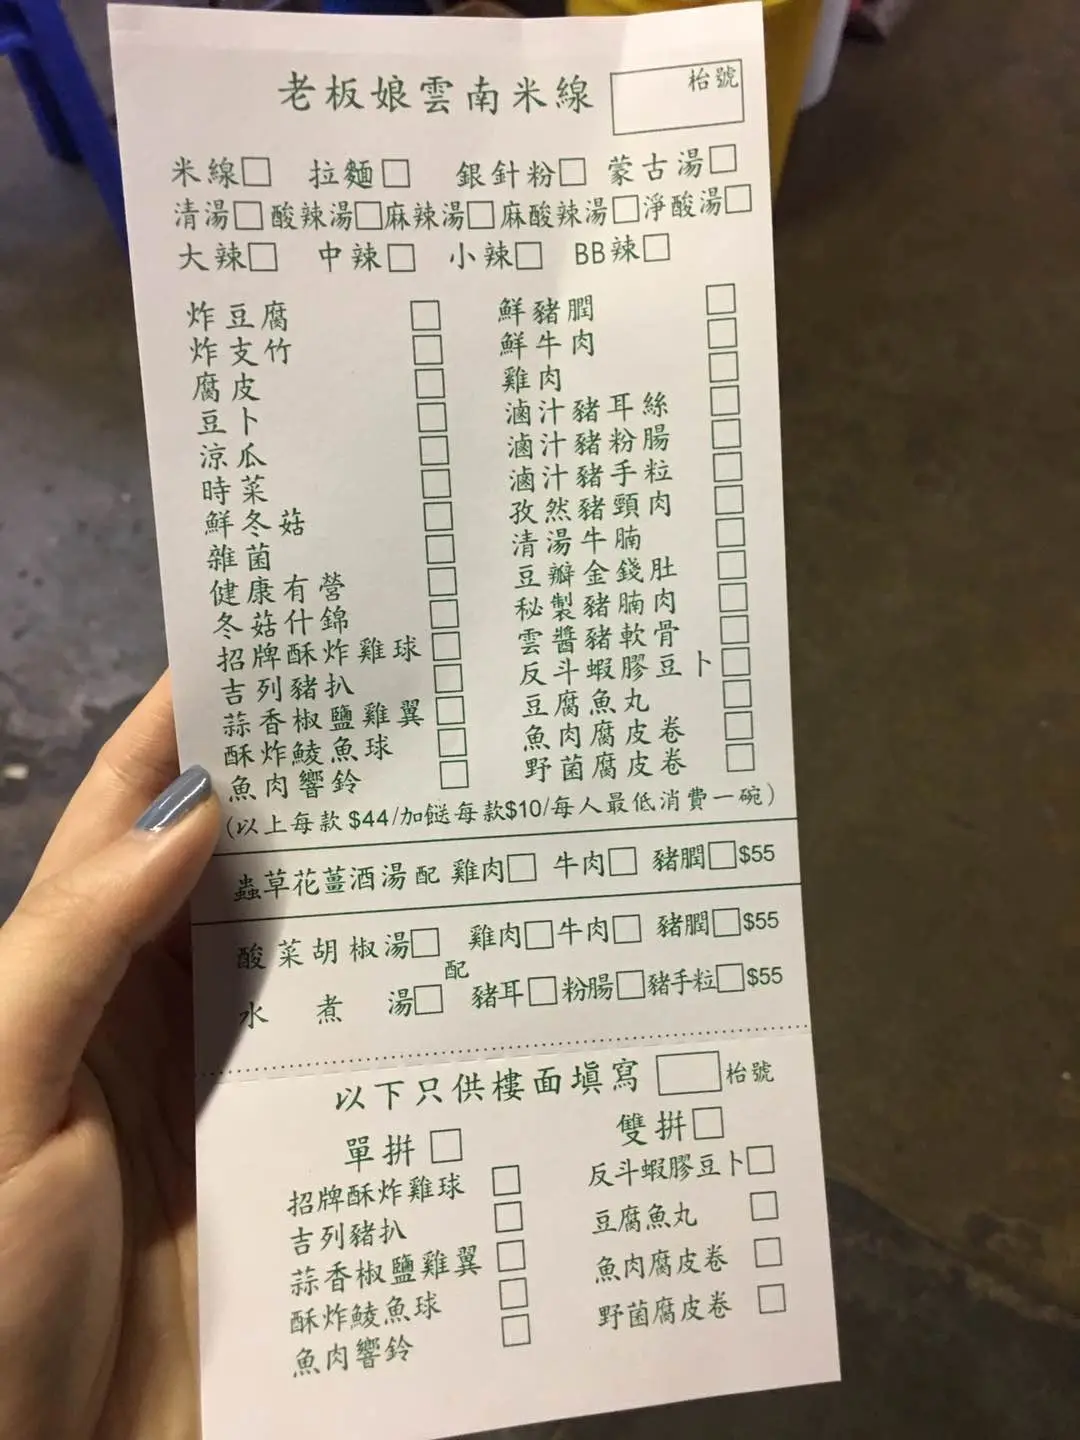 老板娘雲南米線 枱號
米線□ 拉麵□ 銀針粉□ 蒙古湯□
清湯□ 酸辣湯□ 麻辣湯□ 麻酸辣湯□ 淨酸湯□
大辣□ 中辣□ 小辣□ BB辣□
炸豆腐□ 鮮豬膶□
炸支竹□ 鮮牛肉□
腐皮□ 雞肉□
豆卜□ 滷汁豬耳絲□
涼瓜□ 滷汁豬粉腸□
時菜□ 滷汁豬手粒□
鮮冬菇□ 孜然豬頸肉□
雜菌□ 清湯牛腩□
健康有營□ 豆瓣金錢肚□
冬菇什錦□ 秘製豬腩肉□
招牌酥炸雞球□ 雲醬豬軟骨□
吉列豬扒□ 反斗蝦膠豆卜□
蒜香椒鹽雞翼□ 豆腐魚丸□
酥炸鯪魚球□ 魚肉腐皮卷□
魚肉響鈴□ 野菌腐皮卷□
(以上每款$44/加餸每款$10/每人最低消費一碗)
蟲草花薑酒湯 配 雞肉□ 牛肉□ 豬膶□$55
酸菜胡椒湯□ 雞肉□ 牛肉□ 豬膶□$55
配
水煮湯□ 豬耳□ 粉腸□ 豬手粒□$55
以下只供樓面填寫 □枱號
單拼□ 雙拼□
招牌酥炸雞球□ 反斗蝦膠豆卜□
吉列豬扒□ 豆腐魚丸□
蒜香椒鹽雞翼□ 魚肉腐皮卷□
酥炸鯪魚球□ 野菌腐皮卷□
魚肉響鈴□